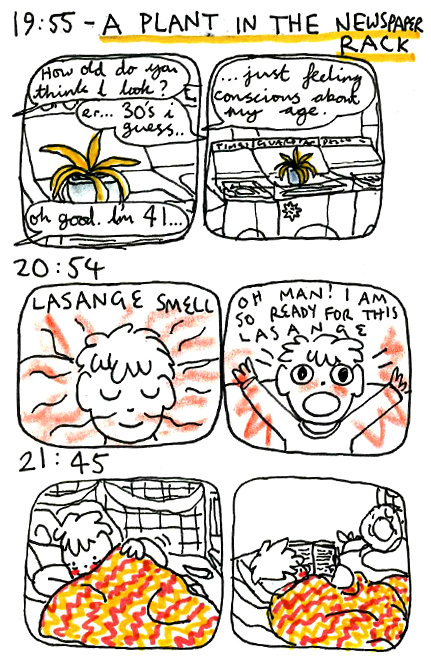 19:55 - A PLANT IN THE NEWSPAPER
RACK
How old do you
think I look?
er... 30's i
guess..
oh good. I'm 41...
... just feeling
conscious about
my age.
TIMES GUARDIAN
20:54
LASANGE SMELL
OH MAN! I AM
SO READY FOR THIS
LASANGE
21:45